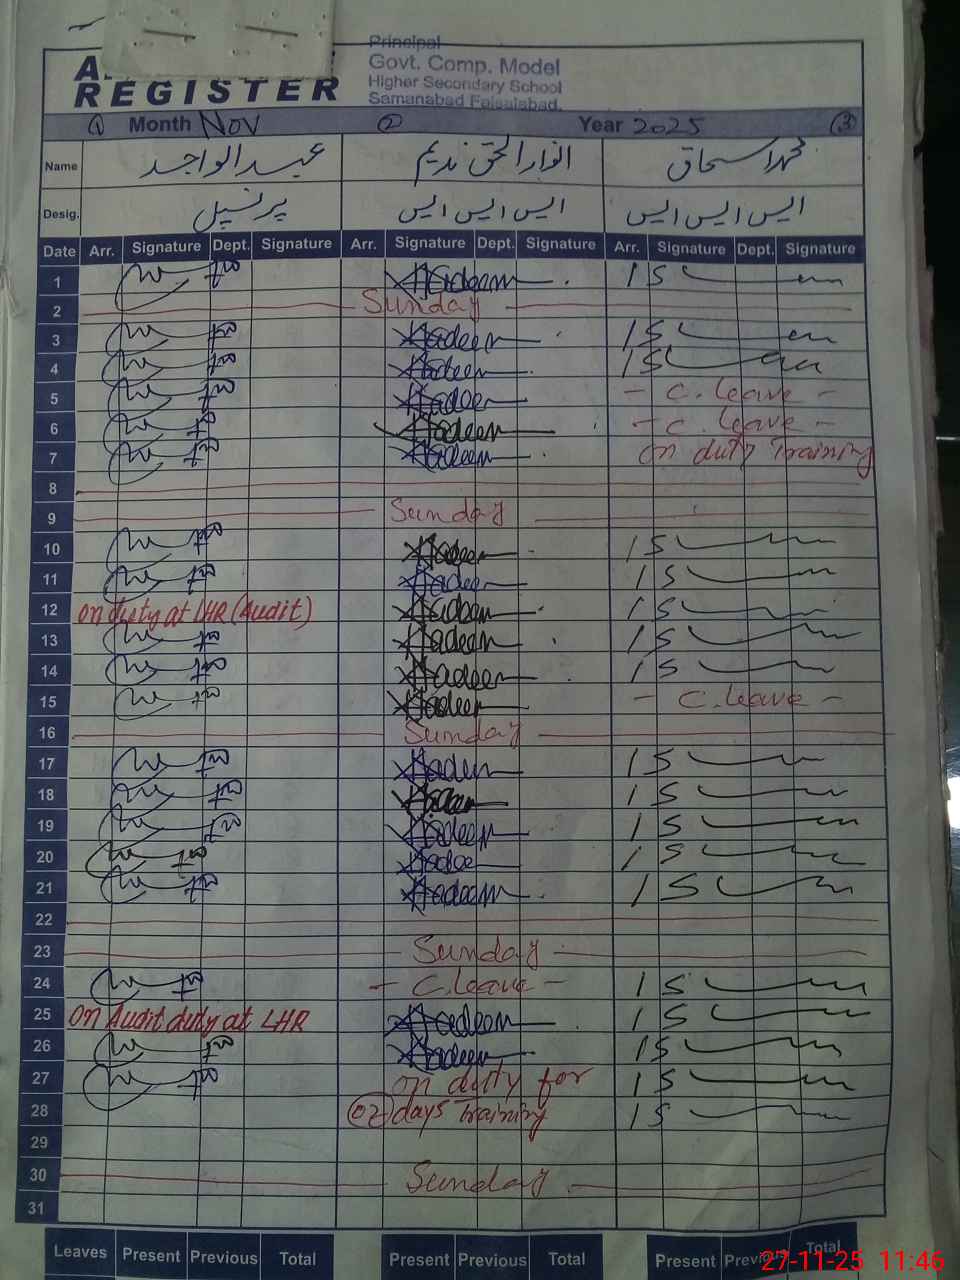 REGISTER
Principal
Govt. Comp. Model
Higher Secondary School
Samanabad Faisalabad.
① Month Nov ② Year 2025 ③
Name عبدالواجد انوارالحق ندیم محمد اسحاق
Desig. پرنسپل ایس ایس ایس ایس ایس ایس
Date Arr. Signature Dept. Signature Arr. Signature Dept. Signature Arr. Signature Dept. Signature
1 Nadeem
2 Sunday
3 Nadeem
4 Nadeem
5 Nadeem - C. leave -
6 Nadeem - C. leave -
7 Nadeem On duty Training
8
9 Sunday
10 Nadeem
11 Nadeem
12 on duty at LHR (Audit) Nadeem
13 Nadeem
14 Nadeem
15 Nadeem - C. leave -
16 Sunday
17 Nadeem
18 Nadeem
19 Nadeem
20 Nadeem
21 Nadeem
22
23 Sunday
24 - C. leave -
25 on Audit duty at LHR Nadeem
26 Nadeem
27 on duty for
28 02 days Training
29
30 Sunday
31
Leaves Present Previous Total Present Previous Total Present Previous Total
27-11-25 11:46